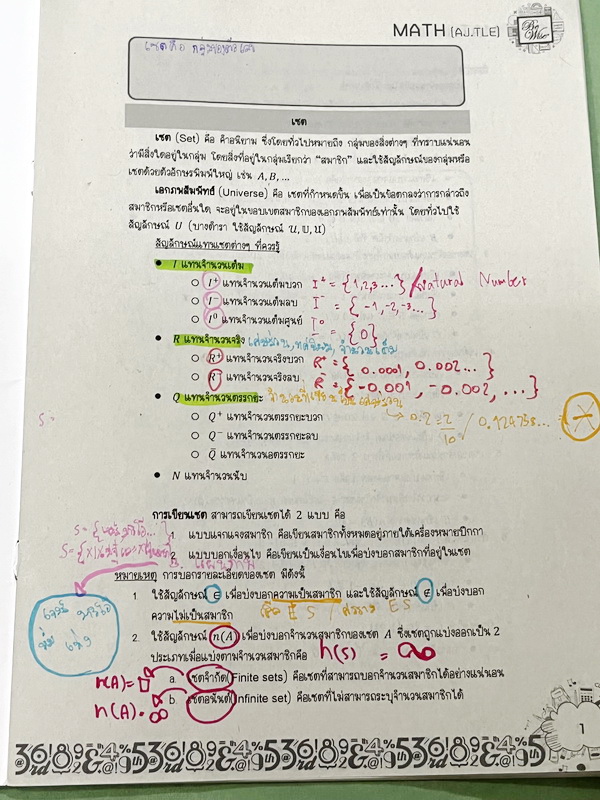 MATH (AJ.TLE)
Be Wise
เซตคือ
เซต
เซต (Set) คือ คำอนิยาม ซึ่งโดยทั่วไปหมายถึง กลุ่มของสิ่งต่างๆ ที่ทราบแน่นอน
ว่ามีสิ่งใดอยู่ในกลุ่ม โดยสิ่งที่อยู่ในกลุ่มเรียกว่า "สมาชิก" และใช้สัญลักษณ์ของกลุ่มหรือ
เซตด้วยตัวอักษรพิมพ์ใหญ่ เช่น A, B, ...
เอกภพสัมพัทธ์ (Universe) คือ เซตที่กำหนดขึ้น เพื่อเป็นข้อตกลงว่าการกล่าวถึง
สมาชิกหรือเซตอื่นใด จะอยู่ในขอบเขตสมาชิกของเอกภพสัมพัทธ์เท่านั้น โดยทั่วไปใช้
สัญลักษณ์ U (บางตำรา ใช้สัญลักษณ์ 𝒰, 𝕌, 𝔘)
สัญลักษณ์แทนเซตต่างๆ ที่ควรรู้
• I แทนจำนวนเต็ม
○ I⁺ แทนจำนวนเต็มบวก I⁺ = {1,2,3...} Natural Number
○ I⁻ แทนจำนวนเต็มลบ I⁻ = {-1,-2,-3...}
○ I⁰ แทนจำนวนเต็มศูนย์ I⁰ = {0}
• R แทนจำนวนจริง เศษส่วน, ทศนิยม, จำนวนเต็ม
○ R⁺ แทนจำนวนจริงบวก R⁺ = {0.0001, 0.002...}
○ R⁻ แทนจำนวนจริงลบ R⁻ = {-0.001, -0.002, ...}
• Q แทนจำนวนตรรกยะ จำนวนที่เขียนเป็นเศษส่วน
○ Q⁺ แทนจำนวนตรรกยะบวก → 0.2 = 2/10 / 0.124738...
○ Q⁻ แทนจำนวนตรรกยะลบ
○ Q̄ แทนจำนวนอตรรกยะ
• N แทนจำนวนนับ
การเขียนเซต สามารถเขียนเซตได้ 2 แบบ คือ
1 แบบแจกแจงสมาชิก คือเขียนสมาชิกทั้งหมดอยู่ภายใต้เครื่องหมายปีกกา
2 แบบบอกเงื่อนไข คือเขียนเป็นเงื่อนไขเพื่อบ่งบอกสมาชิกที่อยู่ในเซต
หมายเหตุ การบอกรายละเอียดของเซต มีดังนี้
1 ใช้สัญลักษณ์ ∈ เพื่อบ่งบอกความเป็นสมาชิก และใช้สัญลักษณ์ ∉ เพื่อบ่งบอก
ความไม่เป็นสมาชิก
2. ใช้สัญลักษณ์ n(A) เพื่อบ่งบอกจำนวนสมาชิกของเซต A ซึ่งเซตถูกแบ่งออกเป็น 2
ประเภทเมื่อแบ่งตามจำนวนสมาชิกคือ n(S) = ∞
a. เซตจำกัด (Finite sets) คือเซตที่สามารถบอกจำนวนสมาชิกได้อย่างแน่นอน
b. เซตอนันต์ (Infinite set) คือเซตที่ไม่สามารถระบุจำนวนสมาชิกได้
n(A) = ∞
1